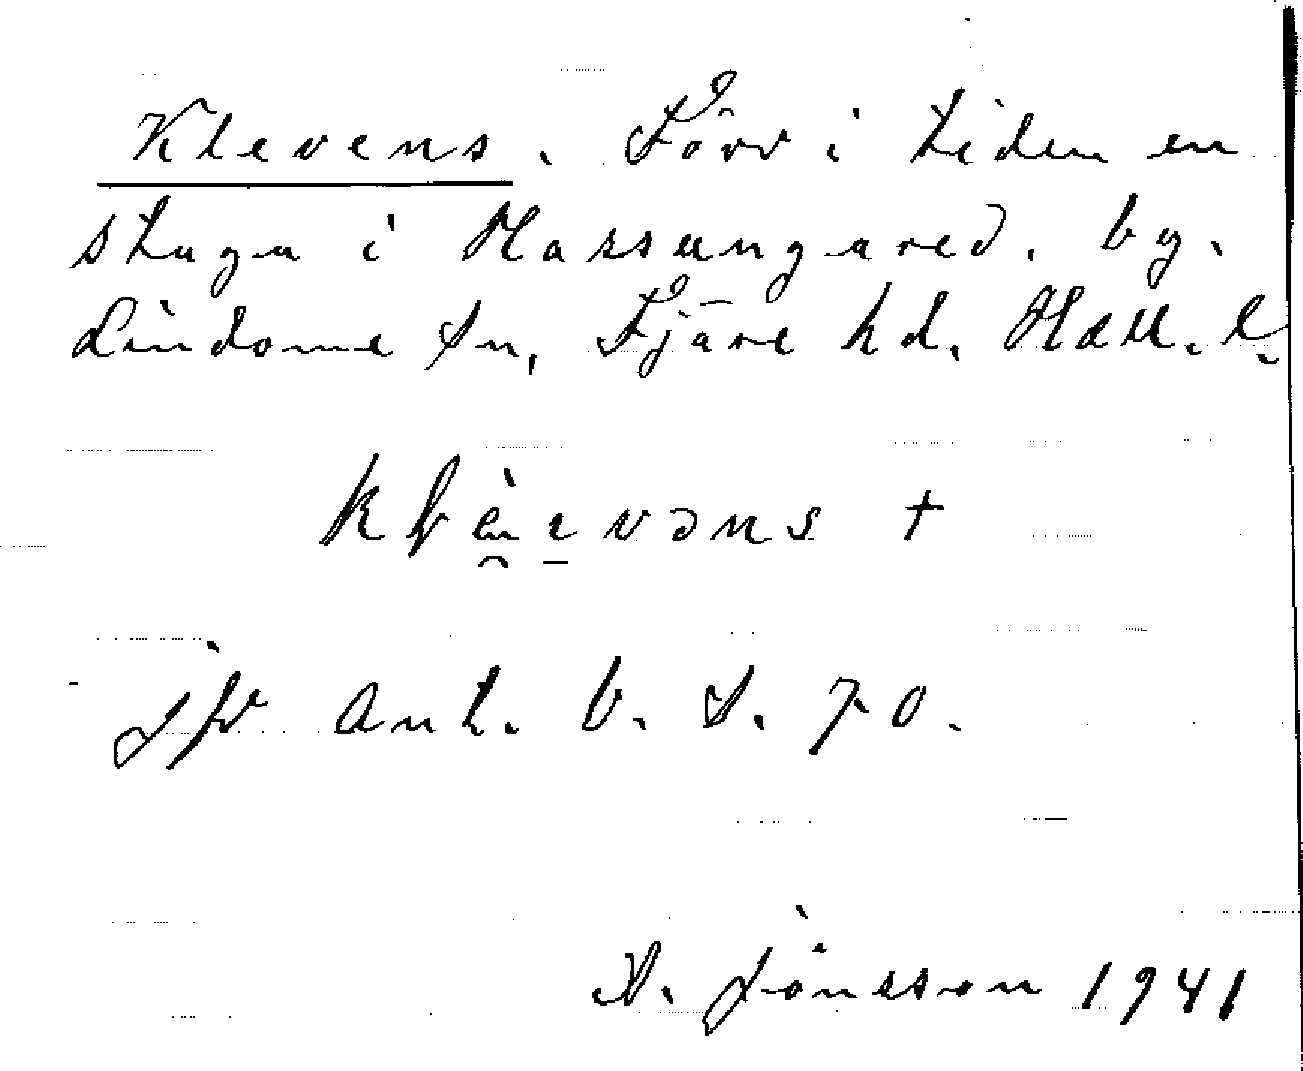 Klevens. Förr i tiden en
stuga i Hassungared. by.
Lindome sn, Fjäre hd. Hall. l.
Jfr ant. b. s. 70.
A. Jönsson 1941